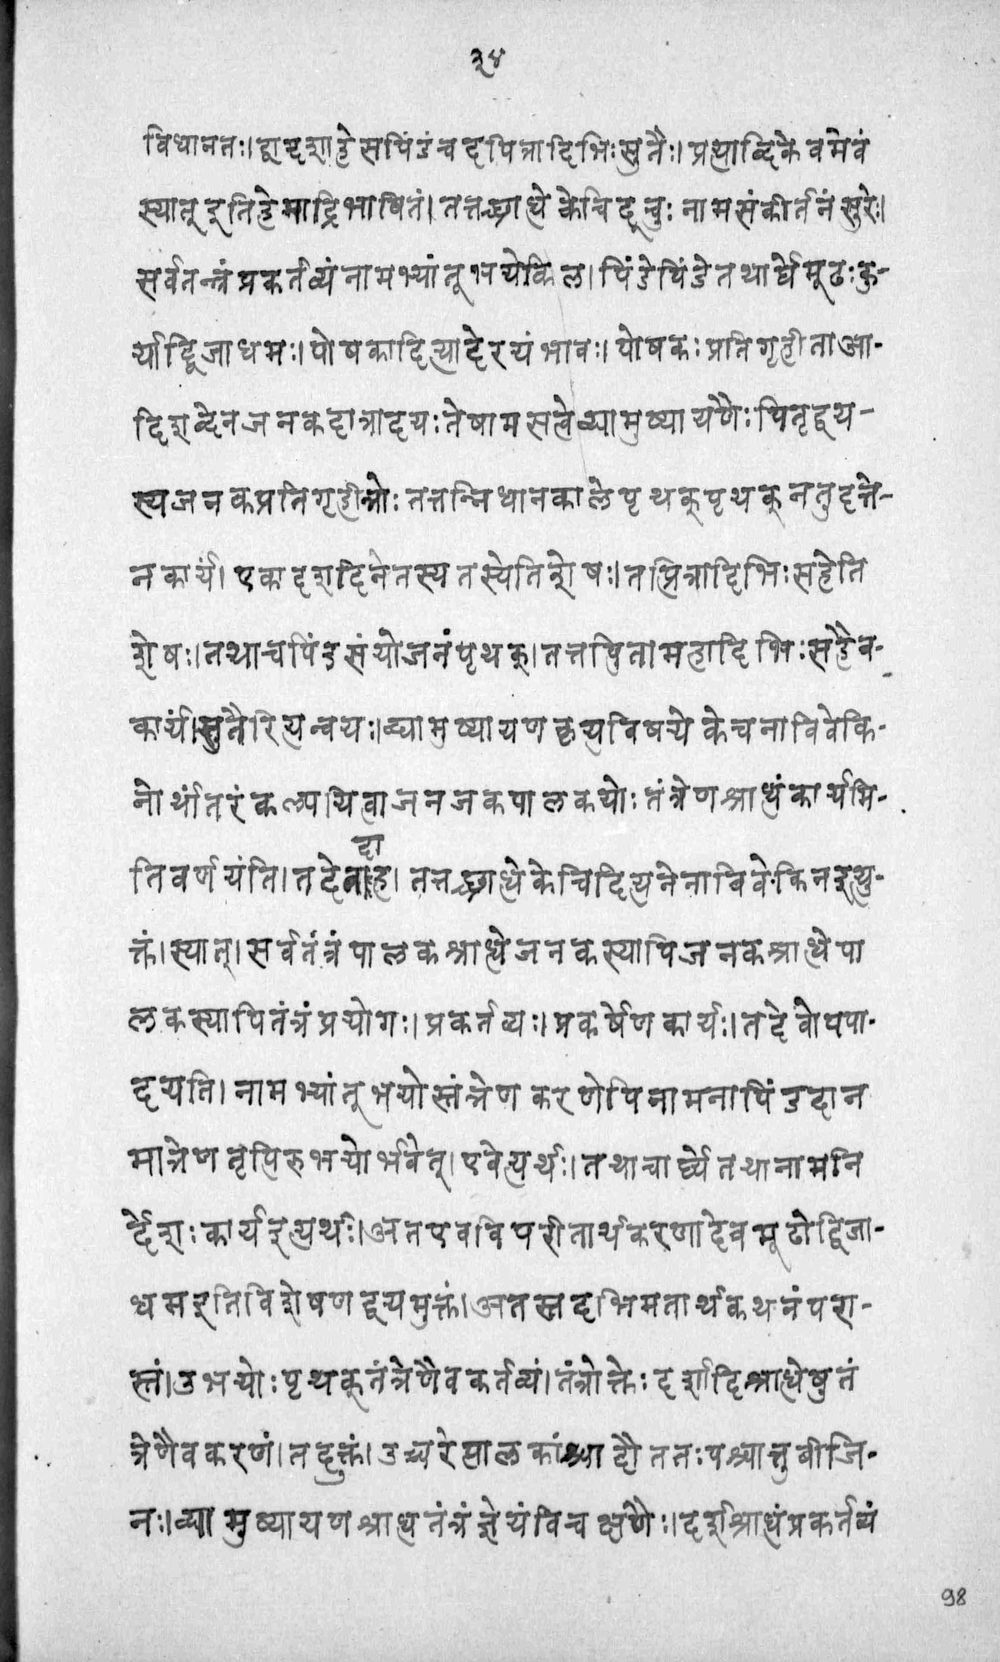 ३४
विधानतः। द्वादशाहे सपिंडं च दपित्रादिभिः सुतैः। प्रत्याब्दिके वमेवं
स्यात् इति हेमाद्रिभाषितं। तत्तच्छ्राधे केचिदूचुः नामसंकीर्तनं सुरेः।
सर्वतन्त्रं प्रकर्तव्यं नामभ्यांतूभयेकिल। पिंडेपिंडे तथार्घे मूढः कु-
र्याद्द्विजाधमः। पोषकादित्यादेरयं भावः। पोषकः प्रतिगृहीता आ-
दिशब्देन जनकदात्रादयः तेषामसत्वेद्यामुष्यायणैः पितृद्वय-
स्य जनकप्रतिगृहीत्रोः तत्तन्निधानकाले पृथक् पृथक् नतु दत्ते-
न कार्यं। एकादशदिने तस्य तस्येति शेषः। तप्पित्रादिभिः सहेति
शेषः। तथाच पिंडसंयोजनं पृथक्। तत्तपितामहादिभिः सहैव-
कार्यं। सुतैरित्यन्वयः। व्द्यामुष्यायणकृत्यविषये केचनाविवेकि-
नोर्थांतरं कल्पयित्वा जनजकपालकयोः तंत्रेण श्राधं कार्यमि-
ति वर्णयंति। तदेवाह। तत्तच्छ्राधे केचिदित्यनेनाविवेकिन इत्यु-
दा
क्तं। स्यात्। सर्वतंत्रं पालकश्राधे जनकस्यापि जनकश्राधे पा
लकस्यापि तंत्रं प्रयोगः। प्रकर्तव्यः। प्रकर्षेण कार्यः। तदेवोपपा-
दयति। नामभ्यांतूभयोस्तंत्रेण करणेपि नामना पिंडदान
मात्रेण तृप्तिरुभयोर्भवेत्। एवेत्यर्थः। तथाचार्घ्ये तथा नामनि
र्देशः कार्य इत्यर्थः। अतएव विपरीतार्थकरणादेव मूढो द्विजा-
धम इति विशेषणद्वयमुक्तं। अतस्तदभिमतार्थकथनं परा-
स्तं। उभयोः पृथक् तंत्रेणैव कर्तव्यं। तंत्रोक्तेः दर्शादिश्राधेषु तं
त्रेणैव करणं। तदुक्तं। उच्चरेत्पालकांश्चादौ ततः पश्चात्तु बीजि-
नः। व्द्यामुष्यायणश्राध तंत्रं ज्ञेयं विचक्षणैः। दर्शश्राधं प्रकर्तव्यं
98